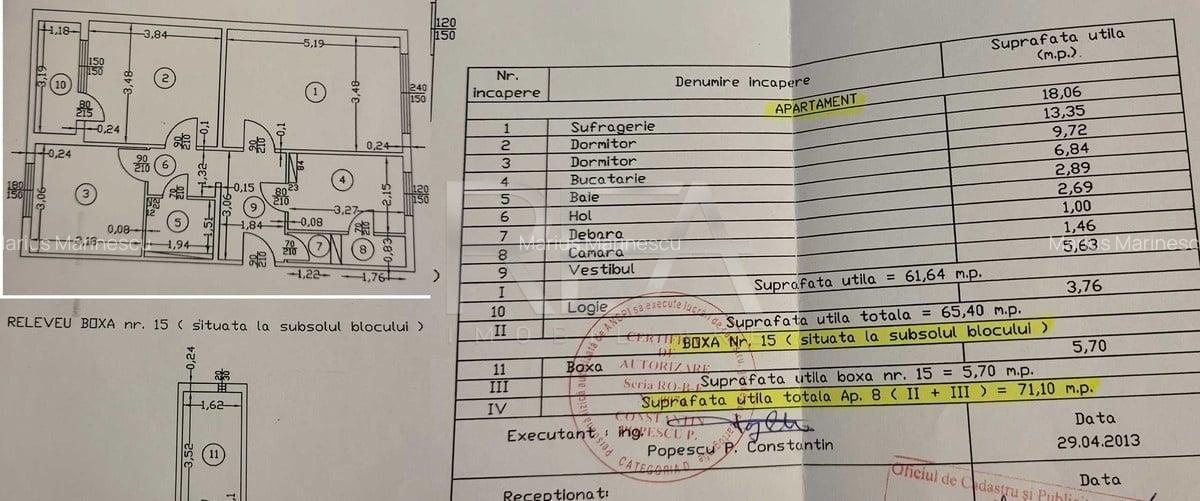 120
150
1,18
3,84
5,19
150
150
2
1
3,19
10
3,48
3,48
240
150
80
215
0,24
90
210
0,1
90
210
0,1
0,24
0,24
90
210
6
1,32
84
4
180
150
3
3,06
70
0,15
80
210
23
2,15
120
150
5
1,51
3,06
9
3,27
0,08
1,94
1,84
0,08
70
210
7
8
0,83
90
210
1,22
1,76
)
RELEVEU BOXA nr. 15 ( situata la subsolul blocului )
0,24
20
30
1,62
3,52
11
Nr. incapere
Denumire incapere
Suprafata utila (m.p.).
APARTAMENT
1 Sufragerie 18,06
2 Dormitor 13,35
3 Dormitor 9,72
4 Bucatarie 6,84
5 Baie 2,89
6 Hol 2,69
7 Debara 1,00
8 Camara 1,46
9 Vestibul 5,63
I Suprafata utila = 61,64 m.p.
10 Logie 3,76
II Suprafata utila totala = 65,40 m.p.
BOXA Nr. 15 ( situata la subsolul blocului )
11 Boxa 5,70
III Suprafata utila boxa nr. 15 = 5,70 m.p.
IV Suprafata utila totala Ap. 8 ( II + III ) = 71,10 m.p.
Executant : ing.
Popescu P. Constantin
Data
29.04.2013
Receptionat:
Data
CERTIFICAT
DE
AUTORIZARE
Seria RO-B-F
CONSTANTIN
POPESCU P.
CATEGORIA D
Oficiul de Cadastru şi Publici
Marius Marinescu
Marius Marinescu
Marius Marinesc
RFA
IMOB